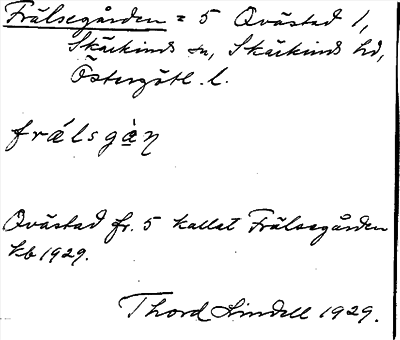 Frälsegården = 5 Qvästad 1,
Skärkinds sn, Skärkinds hd,
Östergötl. l.
frǽlsgὰ̣ɳ
Qvästad fr. 5 kallat Frälsegården
kb 1929.
Thord Lindell 1929.